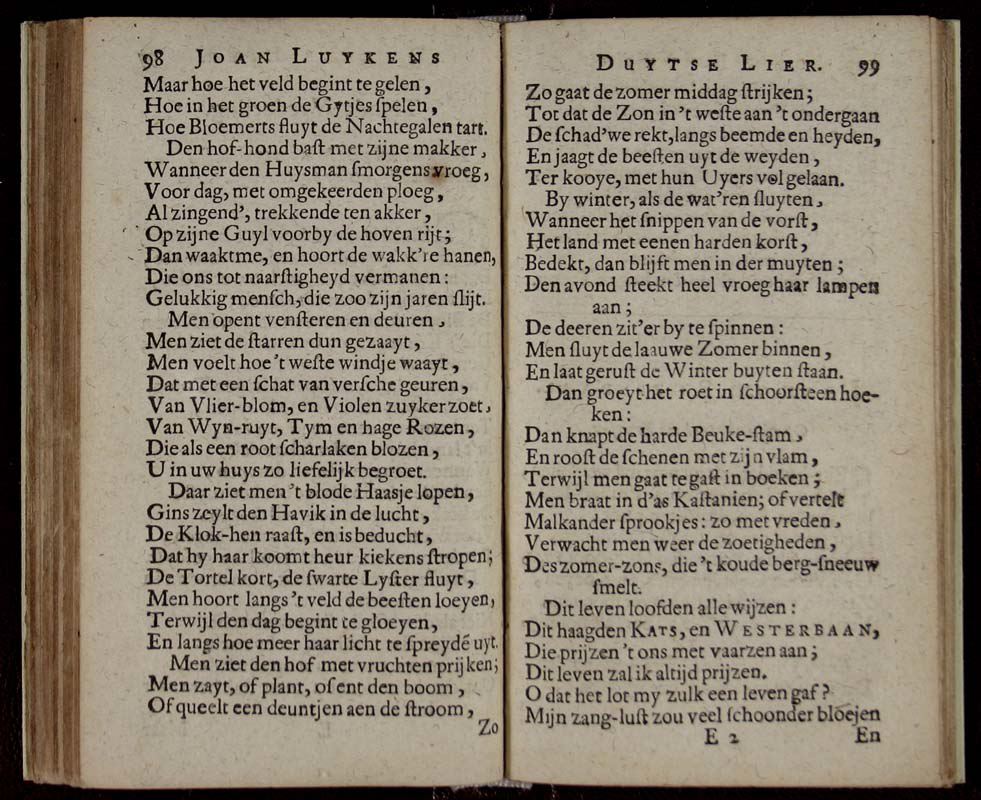 98 JOAN LUYKENS
Maar hoe het veld begint te gelen,
Hoe in het groen de Gytjes ſpelen,
Hoe Bloemerts fluyt de Nachtegalen tart.
Den hof-hond baſt met zijne makker,
Wanneer den Huysman ſmorgens vroeg,
Voor dag, met omgekeerden ploeg,
Al zingend', trekkende ten akker,
Op zijne Guyl voorby de hoven rijt;
Dan waakt me, en hoort de wakk're hanen,
Die ons tot naarſtigheyd vermanen:
Gelukkig menſch, die zoo zijn jaren ſlijt.
Men opent venſteren en deuren,
Men ziet de ſtarren dun gezaayt,
Men voelt hoe 't weſte windje waayt,
Dat met een ſchat van verſche geuren,
Van Vlier-blom, en Violen zuyker zoet,
Van Wyn-ruyt, Tym en hage Rozen,
Die als een root ſcharlaken blozen,
U in uw huys zo liefelijk begroet.
Daar ziet men 't blode Haasje lopen,
Gins zeylt den Havik in de lucht,
De Klok-hen raaſt, en is beducht,
Dat hy haar koomt heur kiekens ſtropen;
De Tortel kort, de ſwarte Lyſter fluyt,
Men hoort langs 't veld de beeſten loeyen,
Terwijl den dag begint te gloeyen,
En langs hoe meer haar licht te ſpreydē uyt.
Men ziet den hof met vruchten prijken;
Men zayt, of plant, of ent den boom,
Of queelt een deuntjen aen de ſtroom,
Zo
DUYTSE LIER. 99
Zo gaat de zomer middag ſtrijken;
Tot dat de Zon in 't weſte aan 't ondergaan
De ſchad'we rekt, langs beemde en heyden,
En jaagt de beeſten uyt de weyden,
Ter kooye, met hun Uyers vol gelaan.
By winter, als de wat'ren ſluyten,
Wanneer het ſnippen van de vorſt,
Het land met eenen harden korſt,
Bedekt, dan blijft men in der muyten;
Den avond ſteekt heel vroeg haar lampen
aan;
De deeren zit'er by te ſpinnen:
Men ſluyt de laauwe Zomer binnen,
En laat geruſt de Winter buyten ſtaan.
Dan groeyt het roet in ſchoorſteen hoe-
ken:
Dan knapt de harde Beuke-ſtam,
En rooſt de ſchenen met zijn vlam,
Terwijl men gaat te gaſt in boeken;
Men braat in d'as Kaſtanien; of vertelt
Malkander ſprookjes: zo met vreden,
Verwacht men weer de zoetigheden,
Des zomer-zons, die 't koude berg-ſneeuw
ſmelt.
Dit leven loofden alle wijzen:
Dit haagden KATS, en WESTERBAAN,
Die prijzen 't ons met vaarzen aan;
Dit leven zal ik altijd prijzen.
O dat het lot my zulk een leven gaf?
Mijn zang-luſt zou veel ſchoonder bloejen
E 2 En